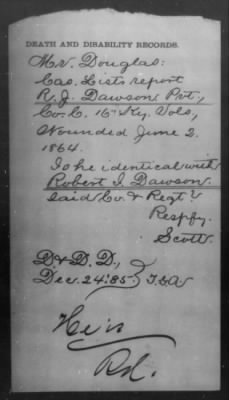 DEATH AND DISABILITY RECORDS.
Mr. Douglas:
Cas. Lists report
R. J. Dawson Pvt.,
Co. C. 16" Ky. Vols.,
Wounded June 2.
1864.
Is he identical with
Robert I. Dawson
said Co. & Regt?
Respfy.
Scott.
D & D. D.,
Dec. 24, '85.